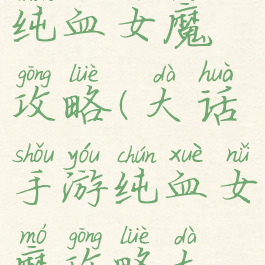 纯血女魔
gōng lüè dà huà
攻略(大话
shǒu yóu chún xuè nǚ
手游纯血女
mó gōng lüè dà
魔攻略大